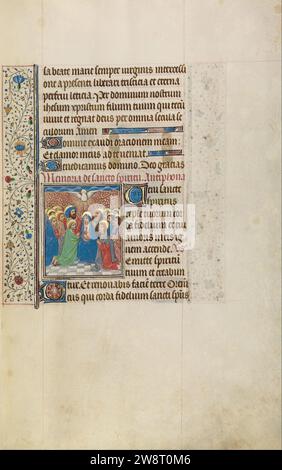 sa beate marie semper virginis intercessi
one a presenti liberari tristicia et eterna
perfrui leticia. Per dominum nostrum
ihesum xpristum filium tuum qui tecū
uiuit et regnat deus per omnia secula se
culorum Amen
Domine exaudi orationem meam
Et clamor meus ad te ueniat
Benedicamus domino. Deo gracias
Memoria de sancto spiritu. Antiphona
Veni sancte
spiritus
reple tuorum cor
da fidelium et tui
amoris in eis ig
nem accende. Vs
Emitte spiritū
tuum et creabun
tur. Et renouabis faciem terre Oremus
Deus qui corda fidelium sancti spūs
alamy
Image ID: 2W8T0M6
www.alamy.com